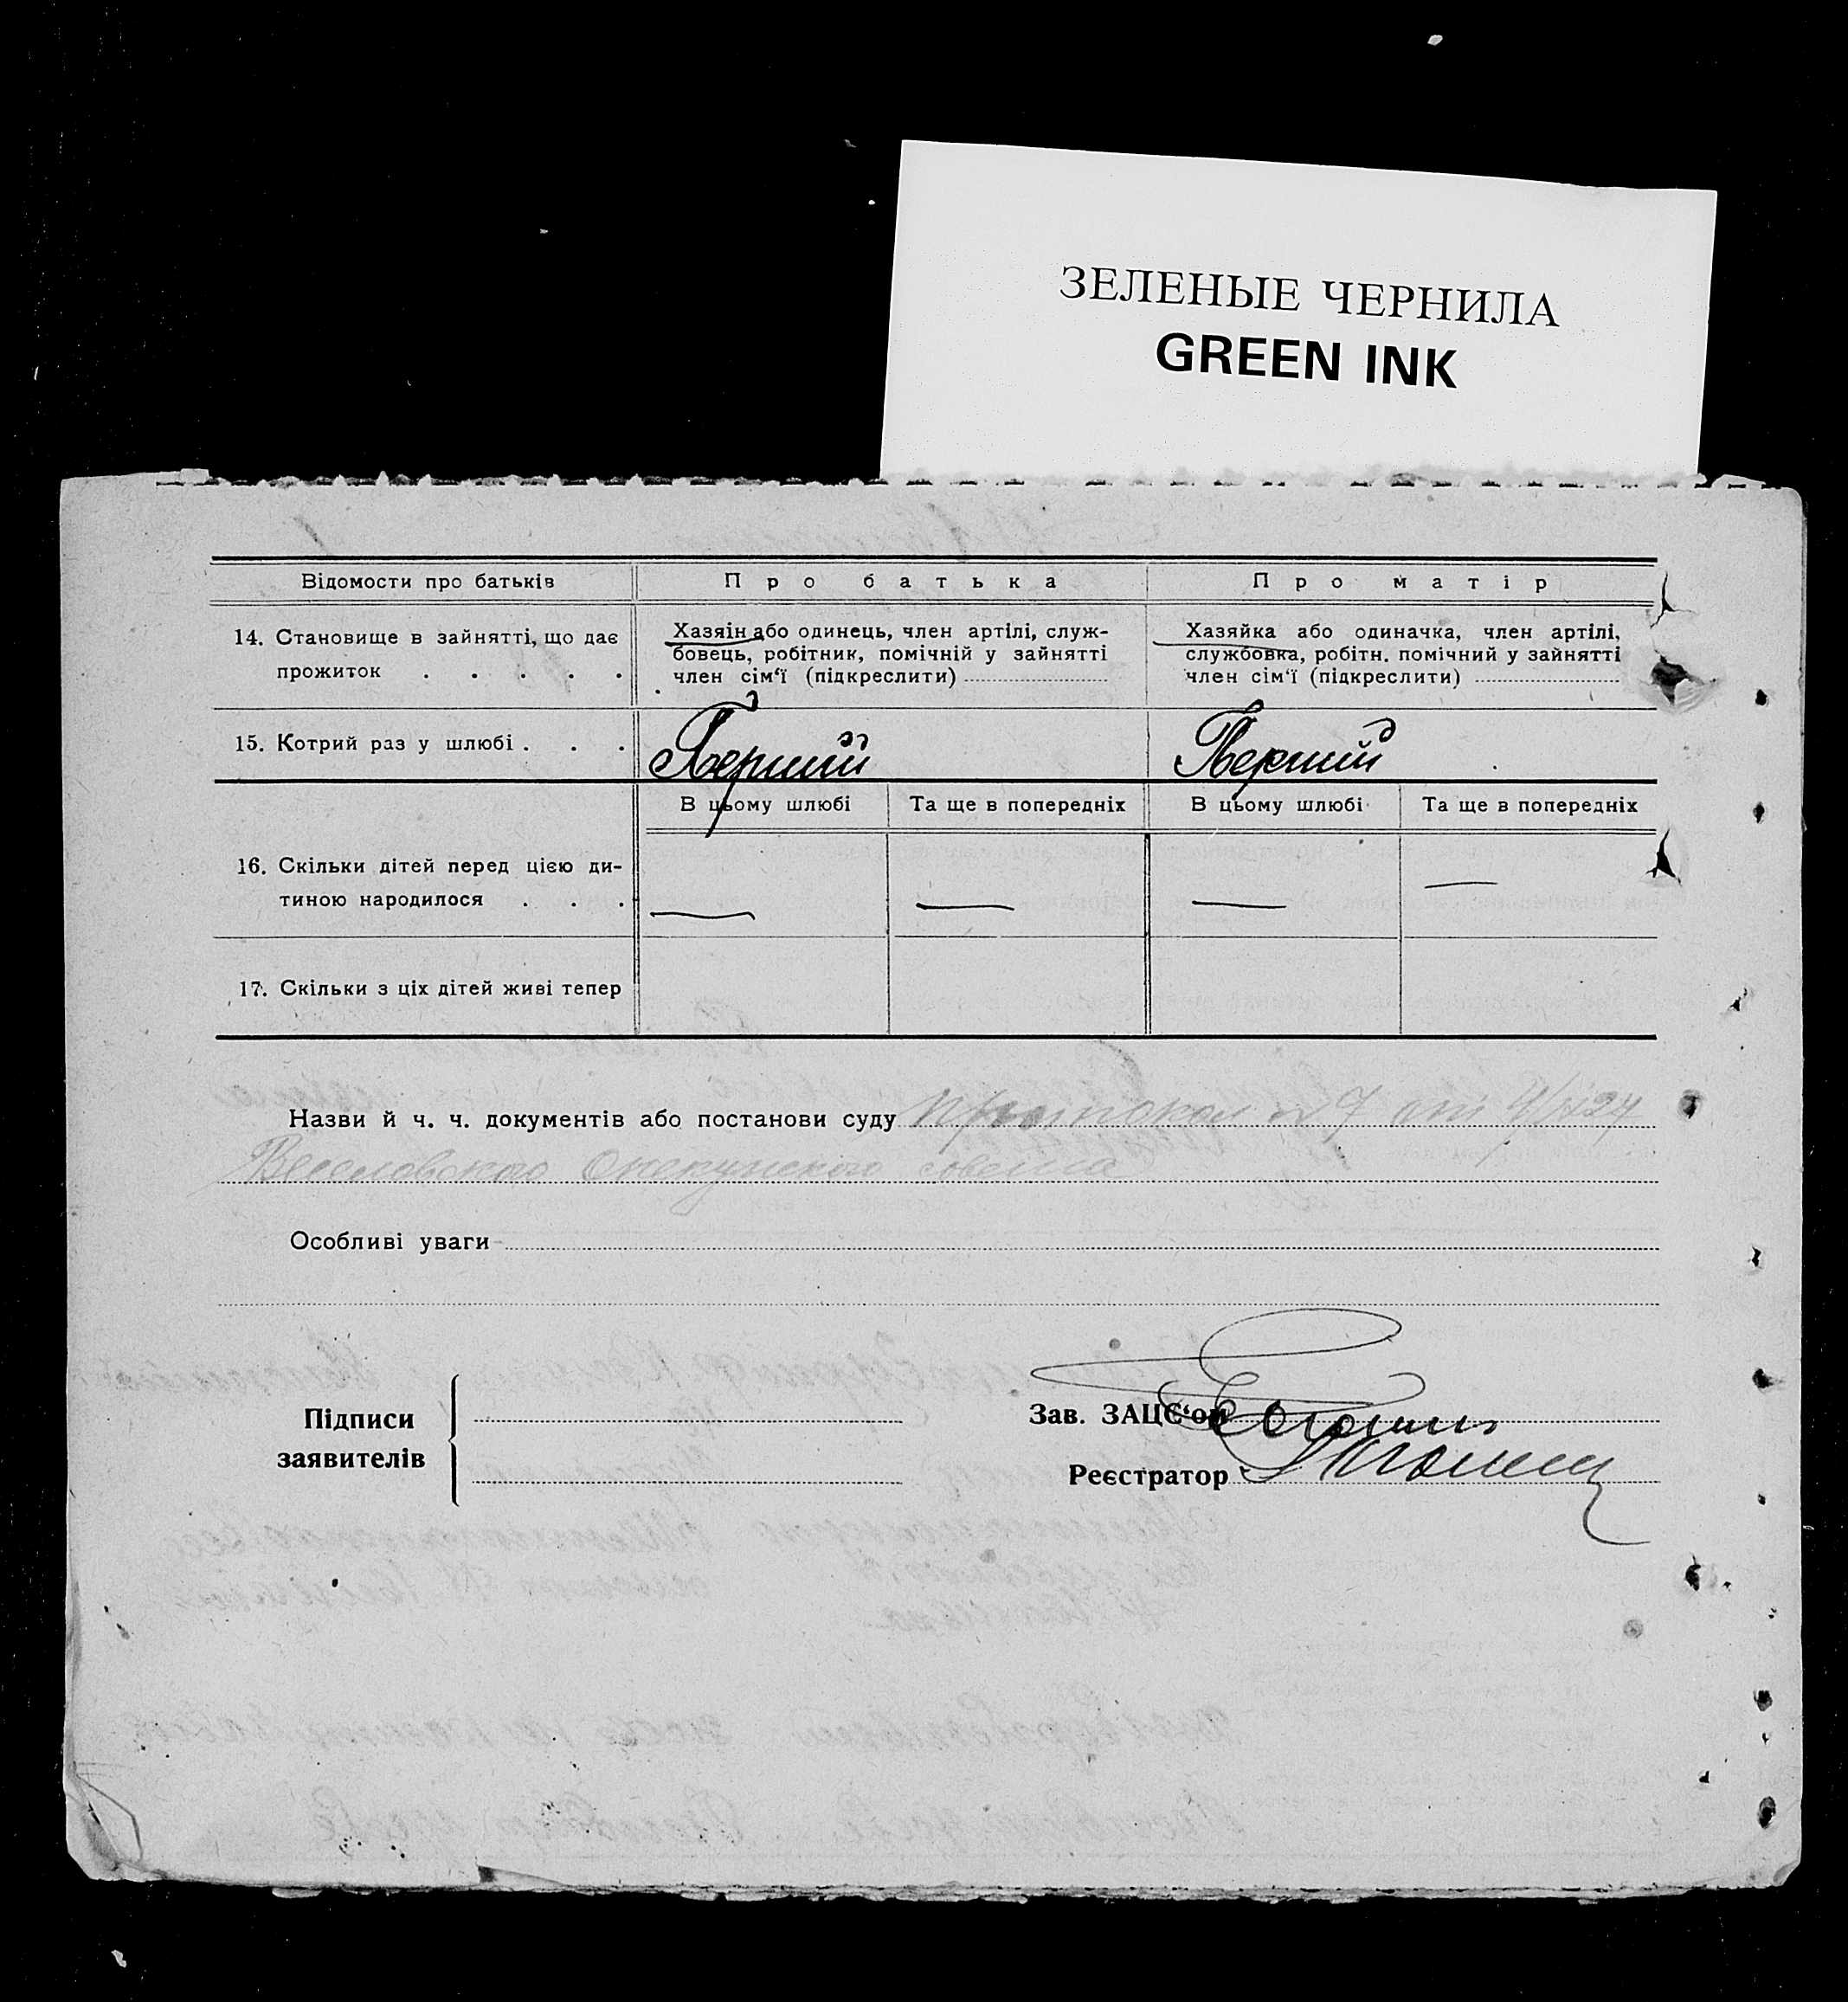 ЗЕЛЕНЫЕ ЧЕРНИЛА
GREEN INK
Відомости про батьків
Про батька
Про матір
14. Становище в зайнятті, що дає
прожиток . . . . .
Хазяін або одинець, член артілі, служ-
бовець, робітник, помічній у зайнятті
член сім'ї (підкреслити)
Хазяйка або одиначка, член артілі,
службовка, робітн. помічний у зайнятті
член сім'ї (підкреслити)
15. Котрий раз у шлюбі . . .
Перший
Перший
В цьому шлюбі
Та ще в попередніх
В цьому шлюбі
Та ще в попередніх
16. Скільки дітей перед цією ди-
тиною народилося . . .
—
—
—
—
17. Скільки з ціх дітей живі тепер
Назви й ч. ч. документів або постанови суду протокол № 7 от
Веселовского Опекунского совета
Особливі уваги
Підписи
заявителів
Зав. ЗАЦС'ом
Реєстратор